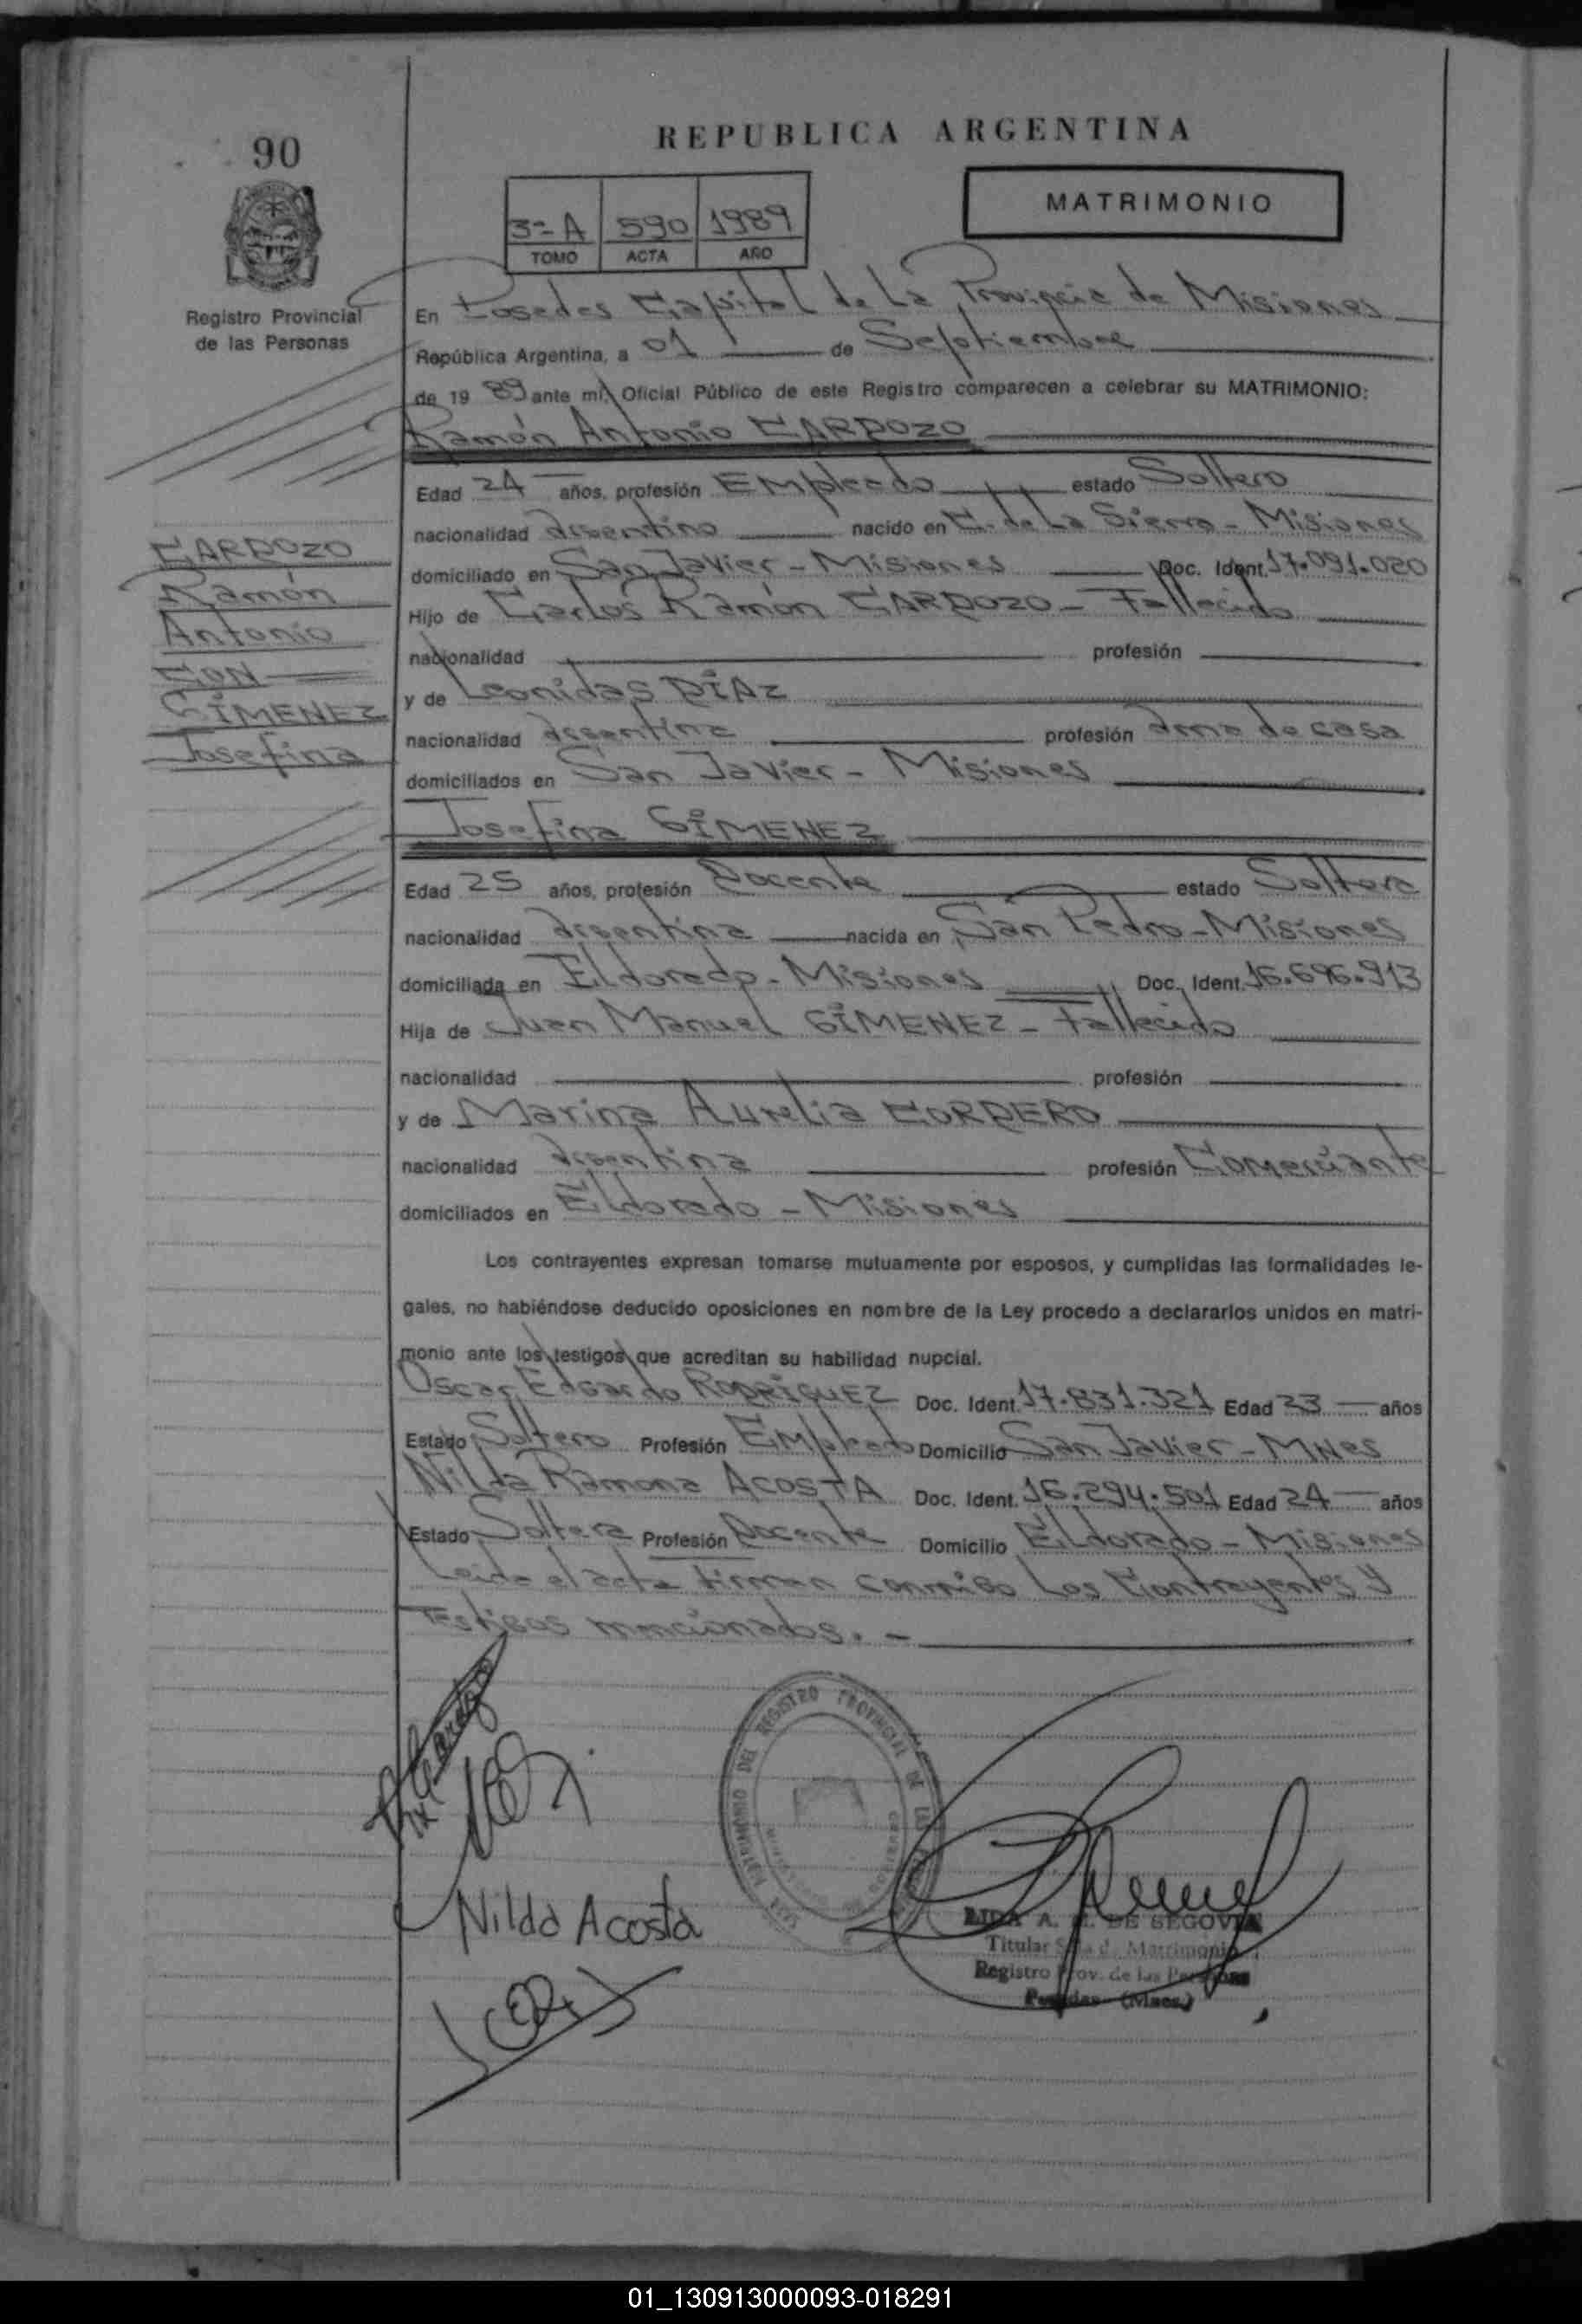 90
REPUBLICA ARGENTINA
MATRIMONIO
3º A 590 1989
TOMO ACTA AÑO
Registro Provincial
de las Personas
En Posadas Capital de La Provincia de Misiones
República Argentina, a 01 de Septiembre
de 19 89 ante mí, Oficial Público de este Registro comparecen a celebrar su MATRIMONIO:
Ramón Antonio CARDOZO
Edad 24 años, profesión Empleado estado Soltero
nacionalidad argentino nacido en C. de La Sierra - Misiones
domiciliado en San Javier - Misiones Doc. Ident. 17.091.020
Hijo de Carlos Ramón CARDOZO - Fallecido
nacionalidad profesión
y de Leonidas DÍAZ
nacionalidad argentina profesión ama de casa
domiciliados en San Javier - Misiones
CARDOZO
Ramón
Antonio
CON
GÍMENEZ
Josefina
Josefina GÍMENEZ
Edad 25 años, profesión Docente estado Soltera
nacionalidad argentina nacida en San Pedro - Misiones
domiciliada en Eldorado - Misiones Doc. Ident. 16.696.913
Hija de Juan Manuel GÍMENEZ - Fallecido
nacionalidad profesión
y de Marina Aurelia CORDERO
nacionalidad argentina profesión Comerciante
domiciliados en Eldorado - Misiones
Los contrayentes expresan tomarse mutuamente por esposos, y cumplidas las formalidades le-
gales, no habiéndose deducido oposiciones en nombre de la Ley procedo a declararlos unidos en matri-
monio ante los testigos que acreditan su habilidad nupcial.
Oscar Edgardo RODRÍGUEZ Doc. Ident. 17.831.321 Edad 23 años
Estado Soltero Profesión Empleado Domicilio San Javier - Mnes
Nilda Ramona ACOSTA Doc. Ident. 16.294.501 Edad 24 años
Estado Soltera Profesión Docente Domicilio Eldorado - Misiones
Leida el acta firman conmigo Los Contrayentes y
Testigos mencionados. -
Nilda Acosta
MATRIMONIO DEL REGISTRO PROVINCIAL DE LAS
LIDA A. DE SEGOVIA
Titular Matrimonio
Registro Prov. de las Personas
Posadas (Mnes.)
01_130913000093-018291